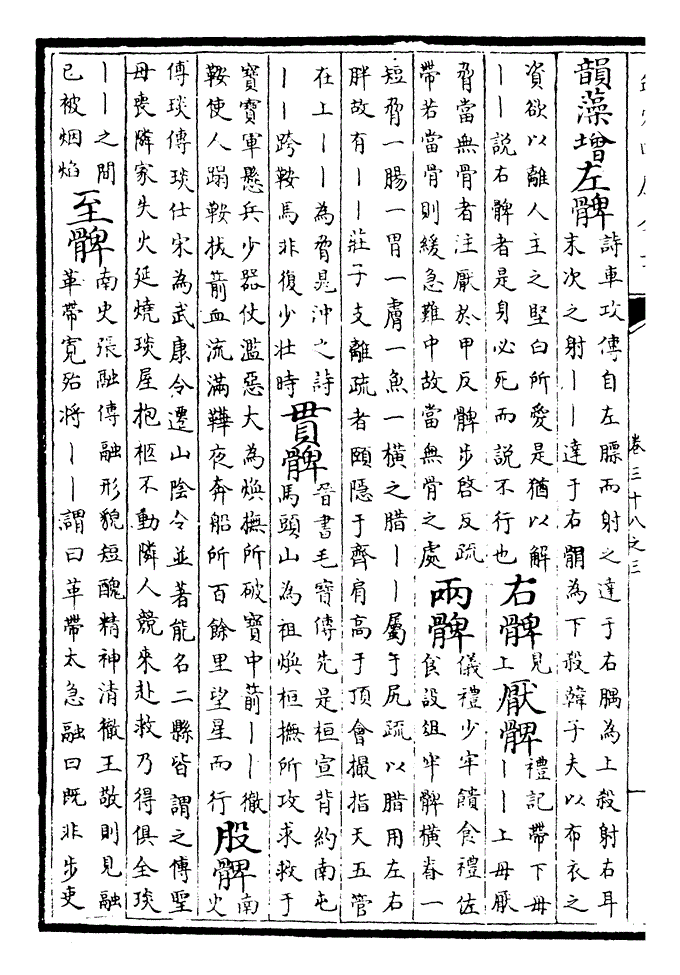 卷三十八之三
韻藻增左髀
詩車攻傳自左膘而射之達于右腢為上殺射右耳
末次之射丨丨達于右䯚為下殺韓子夫以布衣之
資欲以離人主之堅白所愛是猶以解
丨丨說右髀者是身必死而說不行也
右髀
見
上
厭髀
禮記帶下毋
丨丨上毋厭
脅當無骨者注厭於甲反髀步啓反疏
帶若當骨則緩急難中故當無骨之處
兩髀
儀禮少牢饋食禮佐
食設俎牢髀橫脊一
短脅一腸一胃一膚一魚一橫之腊丨丨屬于尻疏以腊用左右
胖故有丨丨莊子支離疏者頤隱于齊肩高于頂會撮指天五管
在上丨丨為脅晁沖之詩
丨丨跨鞍馬非復少壯時
貫髀
晉書毛寶傳先是桓宣背約南屯
馬頭山為祖煥桓撫所攻求救于
寶寶軍懸兵少器仗濫惡大為煥撫所破寶中箭丨丨徹
鞍使人蹋鞍拔箭血流滿鞾夜奔船所百餘里望星而行
股髀
南
史
傅琰傳琰仕宋為武康令遷山陰令並著能名二縣皆謂之傅聖
母喪隣家失火延燒琰屋抱柩不動隣人競來赴救乃得俱全琰
丨丨之間
已被烟焰
至髀
南史張融傳融形貌短醜精神清徹王敬則見融
革帶寛殆將丨丨謂曰革帶太急融曰既非步吏